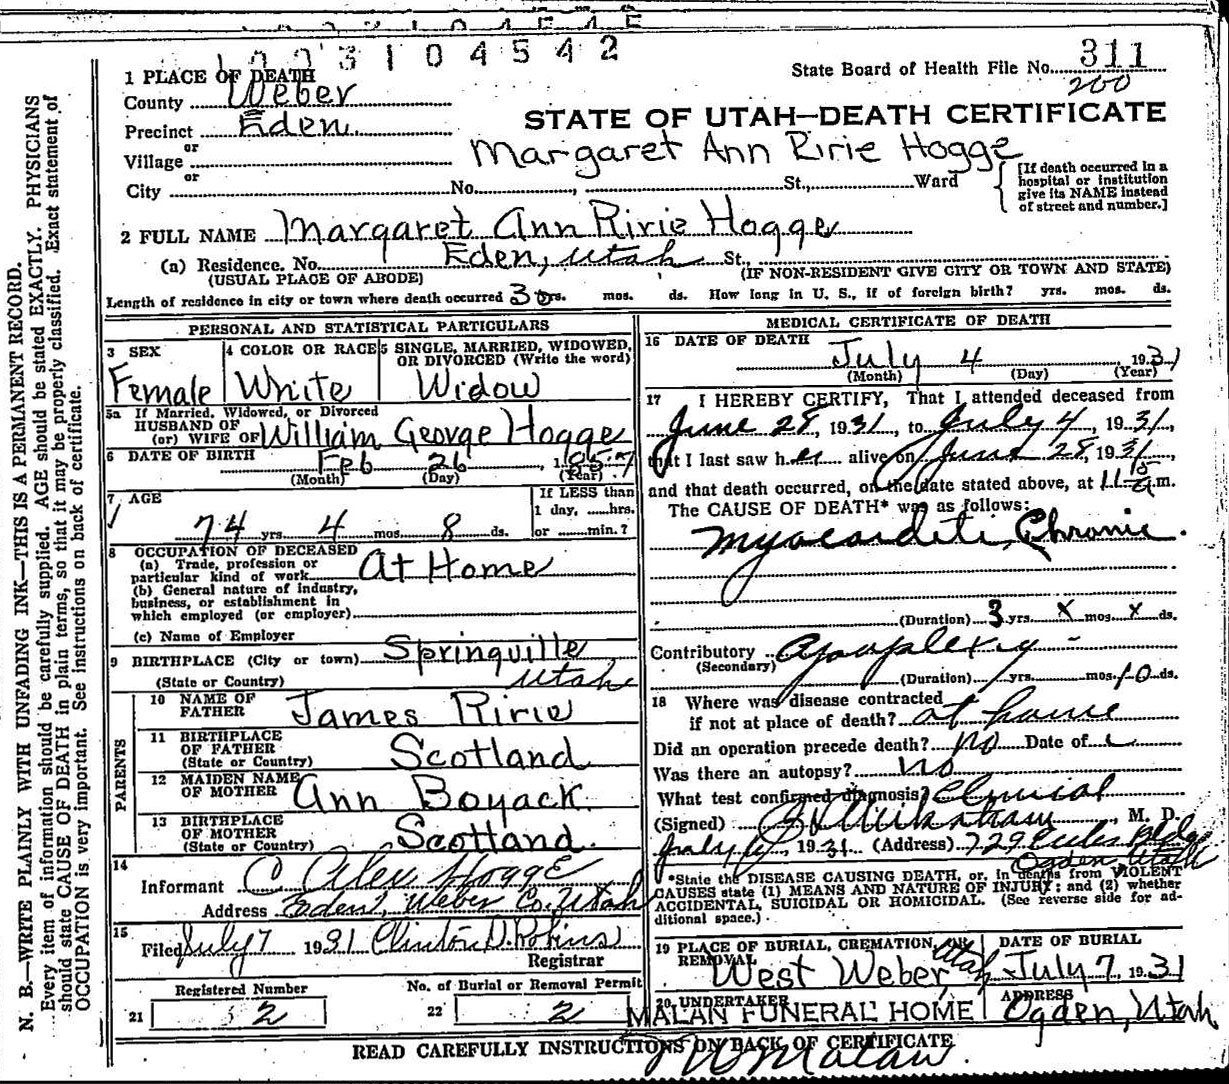 1003104542
State Board of Health File No. 311
200
1 PLACE OF DEATH
County Weber
Precinct Eden
or
Village
or
City No. St., Ward
STATE OF UTAH—DEATH CERTIFICATE
Margaret Ann Ririe Hogge
[If death occurred in a
hospital or institution
give its NAME instead
of street and number.]
2 FULL NAME Margaret Ann Ririe Hogge
(a) Residence. No. Eden, Utah St.,
(USUAL PLACE OF ABODE) (IF NON-RESIDENT GIVE CITY OR TOWN AND STATE)
Length of residence in city or town where death occurred yrs. mos. ds. How long in U. S., if of foreign birth? yrs. mos. ds.
PERSONAL AND STATISTICAL PARTICULARS
3 SEX 4 COLOR OR RACE 5 SINGLE, MARRIED, WIDOWED,
OR DIVORCED (Write the word)
Female White Widow
5a If Married, Widowed, or Divorced
HUSBAND OF
(or) WIFE OF William George Hogge
6 DATE OF BIRTH Feb 26, 1857
(Month) (Day) (Year)
7 AGE If LESS than
1 day, hrs.
74 yrs. 4 mos. 8 ds. or min.?
8 OCCUPATION OF DECEASED
(a) Trade, profession or
particular kind of work At Home
(b) General nature of industry,
business, or establishment in
which employed (or employer)
(c) Name of Employer
9 BIRTHPLACE (City or town) Springville
(State or Country) Utah
PARENTS
10 NAME OF
FATHER James Ririe
11 BIRTHPLACE
OF FATHER
(State or Country) Scotland
12 MAIDEN NAME
OF MOTHER Ann Boyack
13 BIRTHPLACE
OF MOTHER
(State or Country) Scotland
14
Informant C Alex Hogge
Address Eden, Weber Co. Utah
15
Filed July 7 1931 Clinton D. Robins
Registrar
Registered Number No. of Burial or Removal Permit
21 2 22 2
MEDICAL CERTIFICATE OF DEATH
16 DATE OF DEATH
July 4, 1931
(Month) (Day) (Year)
17 I HEREBY CERTIFY, That I attended deceased from
June 28, 1931, to July 4, 1931,
that I last saw her alive on June 28, 1931,
and that death occurred, on the date stated above, at 11 15 a m.
The CAUSE OF DEATH* was as follows:
Myocarditi, Chronic.
(Duration) 3 yrs. x mos. x ds.
Contributory Apoplexy -
(Secondary)
(Duration) yrs. mos. 10 ds.
18 Where was disease contracted
if not at place of death? at home
Did an operation precede death? no Date of
Was there an autopsy? no
What test confirmed diagnosis? Clinical
(Signed) , M. D.
July 1931 (Address) 729 Eccles Bldg
Ogden, Utah
*State the DISEASE CAUSING DEATH, or, in deaths from VIOLENT
CAUSES state (1) MEANS AND NATURE OF INJURY; and (2) whether
ACCIDENTAL, SUICIDAL OR HOMICIDAL. (See reverse side for ad-
ditional space.)
19 PLACE OF BURIAL, CREMATION, OR
REMOVAL
West Weber, Utah
DATE OF BURIAL
July 7, 1931
20 UNDERTAKER
MALAN FUNERAL HOME
ADDRESS
Ogden, Utah
READ CAREFULLY INSTRUCTIONS ON BACK OF CERTIFICATE
N. B.—WRITE PLAINLY WITH UNFADING INK—THIS IS A PERMANENT RECORD.
Every item of information should be carefully supplied. AGE should be stated EXACTLY. PHYSICIANS
should state CAUSE OF DEATH in plain terms, so that it may be properly classified. Exact statement of
OCCUPATION is very important. See instructions on back of certificate.